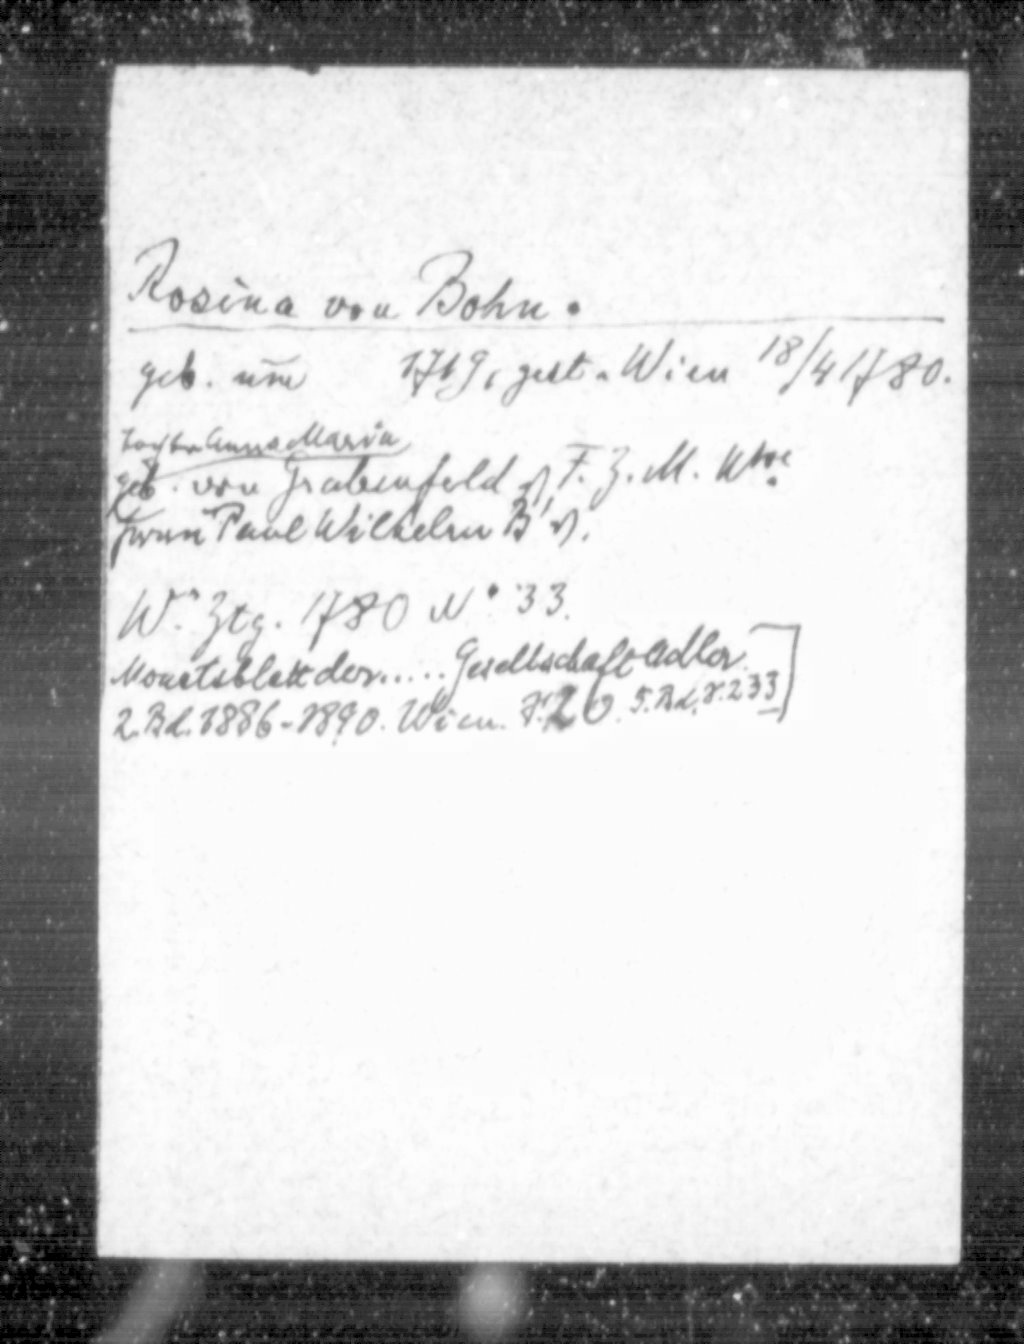 Rosina von Bohn.
geb. um 1719, gest. Wien 18/4 1780.
Tochter Anna Maria
geb. von Grabenfeld, F. Z. M. Wwe.
Paul Wilhelm B v.
W. Ztg. 1780 No 33.
Monatsblatt der..... Gesellschaft Adler
2. Bd. 1886-1890. Wien. S. 20. 5. Bd. S. 233]